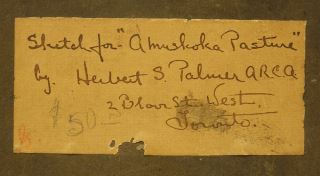 Sketch for "A Muskoka Pasture"
by Herbert S. Palmer A.R.C.A
2 Bloor St. West.
$50.00
Toronto.